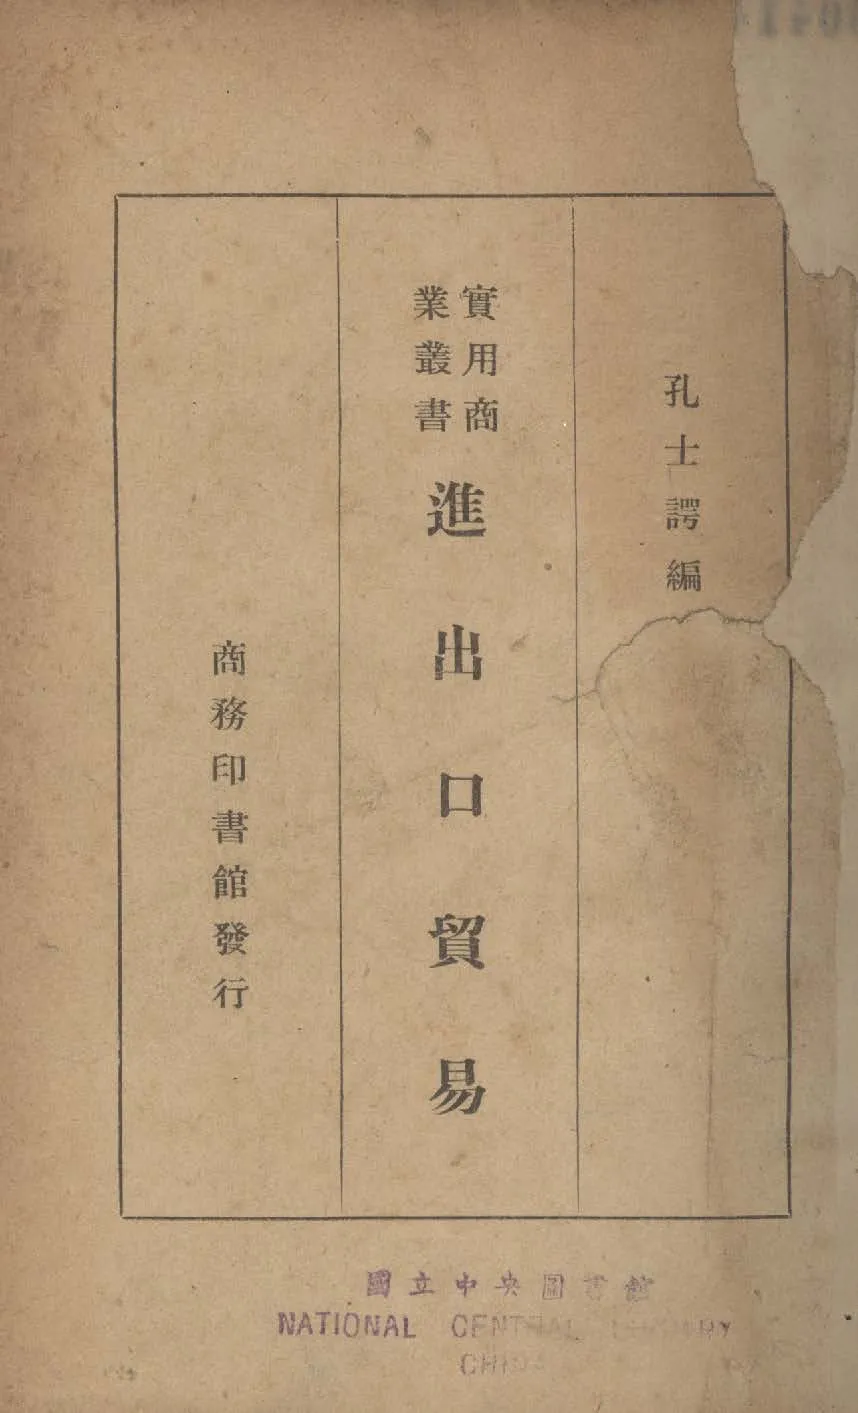 孔士諤編
實用商
業叢書
進出口貿易
商務印書館發行
國立中央圖書館
NATIONAL CENTRAL LIBRARY
CHINA